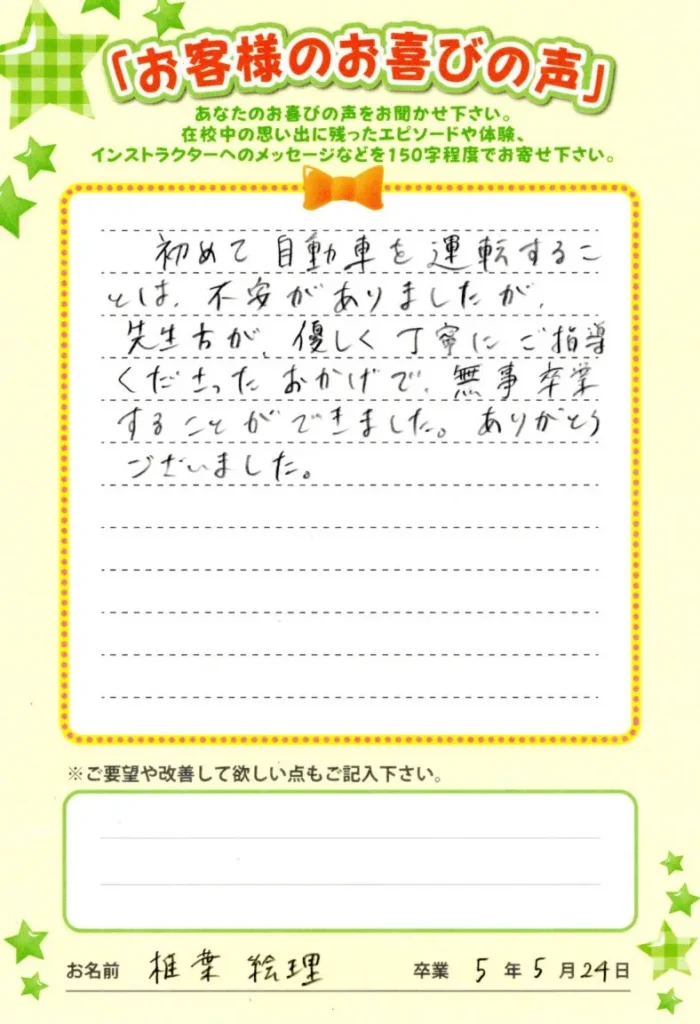 「お客様のお喜びの声」
あなたのお喜びの声をお聞かせ下さい。
在校中の思い出に残ったエピソードや体験、
インストラクターへのメッセージなどを150字程度でお寄せ下さい。
初めて自動車を運転するこ
とは、不安がありましたが、
先生方が、優しく丁寧にご指導
くださったおかげで、無事卒業
することができました。ありがとう
ございました。
※ご要望や改善して欲しい点もご記入下さい。
お名前 椎葉 絵理 卒業 5 年 5 月 24 日